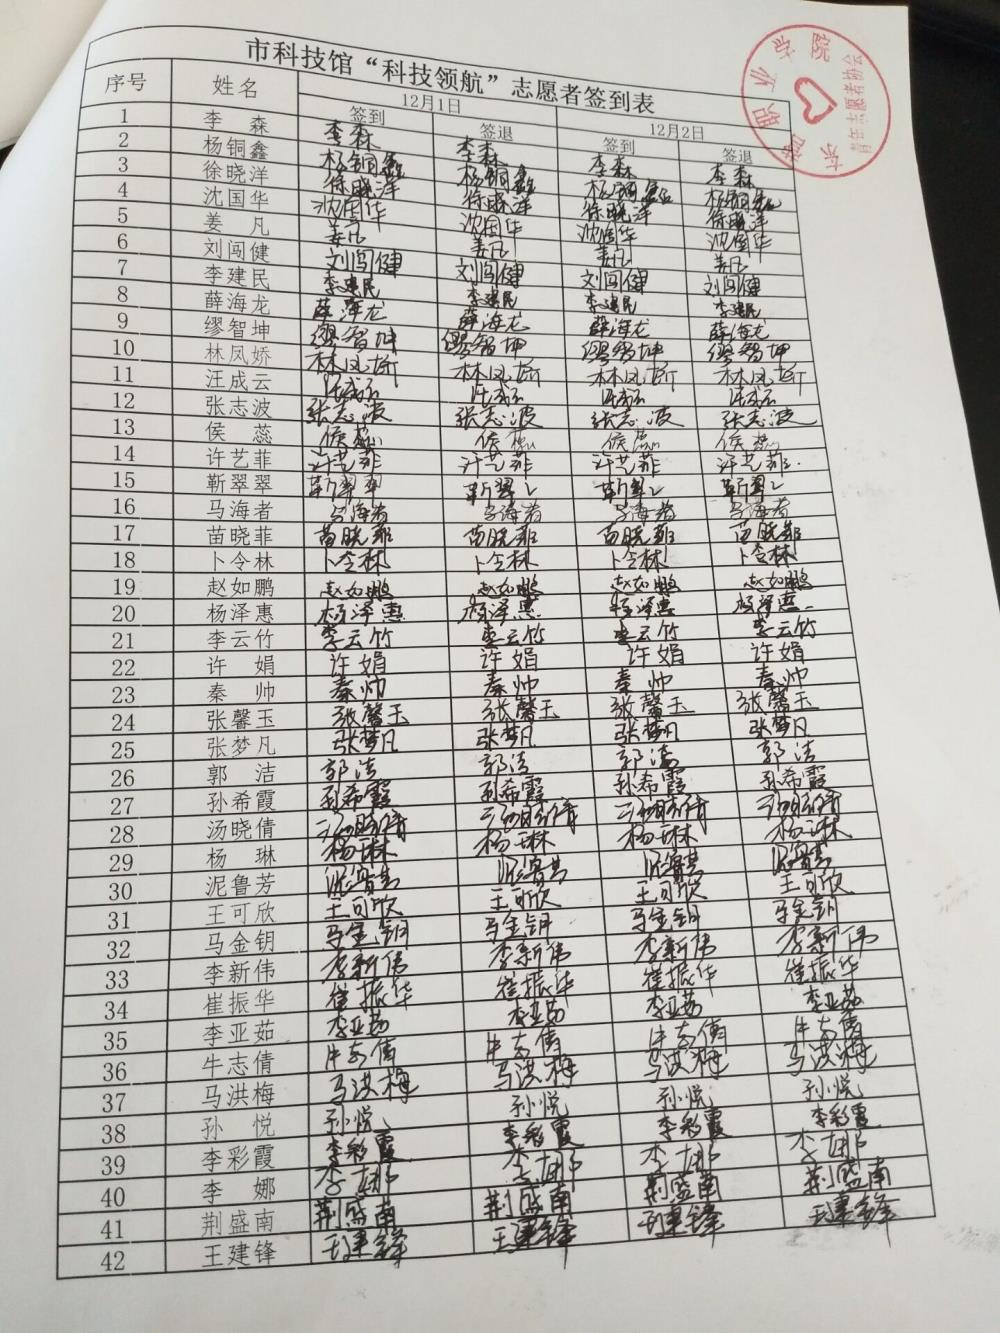 市科技馆“科技领航”志愿者签到表
序号 姓名 12月1日 12月2日
签到 签退 签到 签退
1 李森 李森 李森 李森 李森
2 杨铜鑫 杨铜鑫 杨铜鑫 杨铜鑫 杨铜鑫
3 徐晓洋 徐晓洋 徐晓洋 徐晓洋 徐晓洋
4 沈国华 沈国华 沈国华 沈国华 沈国华
5 姜凡 姜凡 姜凡 姜凡 姜凡
6 刘闯健 刘闯健 刘闯健 刘闯健 刘闯健
7 李建民 李建民 李建民 李建民 李建民
8 薛海龙 薛海龙 薛海龙 薛海龙 薛海龙
9 缪智坤 缪智坤 缪智坤 缪智坤 缪智坤
10 林凤娇 林凤娇 林凤娇 林凤娇 林凤娇
11 汪成云 汪成云 汪成云 汪成云 汪成云
12 张志波 张志波 张志波 张志波 张志波
13 侯蕊 侯蕊 侯蕊 侯蕊 侯蕊
14 许艺菲 许艺菲 许艺菲 许艺菲 许艺菲
15 靳翠翠 靳翠翠 靳翠 靳翠 靳翠
16 马海者 马海者 马海者 马海者 马海者
17 苗晓菲 苗晓菲 苗晓菲 苗晓菲 苗晓菲
18 卜令林 卜令林 卜令林 卜令林 卜令林
19 赵如鹏 赵如鹏 赵如鹏 赵如鹏 赵如鹏
20 杨泽惠 杨泽惠 杨泽惠 杨泽惠 杨泽惠
21 李云竹 李云竹 李云竹 李云竹 李云竹
22 许娟 许娟 许娟 许娟 许娟
23 秦帅 秦帅 秦帅 秦帅 秦帅
24 张馨玉 张馨玉 张馨玉 张馨玉 张馨玉
25 张梦凡 张梦凡 张梦凡 张梦凡
26 郭洁 郭洁 郭洁 郭洁 郭洁
27 孙希霞 孙希霞 孙希霞 孙希霞 孙希霞
28 汤晓倩 汤晓倩 汤晓倩 汤晓倩 汤晓倩
29 杨琳 杨琳 杨琳 杨琳 杨琳
30 泥鲁芳 泥鲁芳 泥鲁芳 泥鲁芳 泥鲁芳
31 王可欣 王可欣 王可欣 王可欣 王可欣
32 马金钥 马金钥 马金钥 马金钥 马金钥
33 李新伟 李新伟 李新伟 李新伟 李新伟
34 崔振华 崔振华 崔振华 崔振华 崔振华
35 李亚茹 李亚茹 李亚茹 李亚茹 李亚茹
36 牛志倩 牛志倩 牛志倩 牛志倩 牛志倩
37 马洪梅 马洪梅 马洪梅 马洪梅 马洪梅
38 孙悦 孙悦 孙悦 孙悦 孙悦
39 李彩霞 李彩霞 李彩霞 李彩霞 李彩霞
40 李娜 李娜 李娜 李娜 李娜
41 荆盛南 荆盛南 荆盛南 荆盛南 荆盛南
42 王建锋 王建锋 王建锋 王建锋 王建锋
东营职业学院
青年志愿者协会